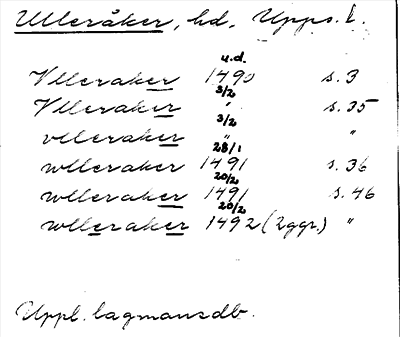 Ulleråker, hd, Upps. l.
u.d.
Vlleraker 1490 s. 3
3/2
Vlleraker ″ s. 35
3/2
vlleraker ″ ″
28/1
wlleraker 1491 s. 36
20/2
wlleraker 1491 s. 46
20/2
wlleraker 1492 (2 ggr.) ″
Uppl. lagmansdb.